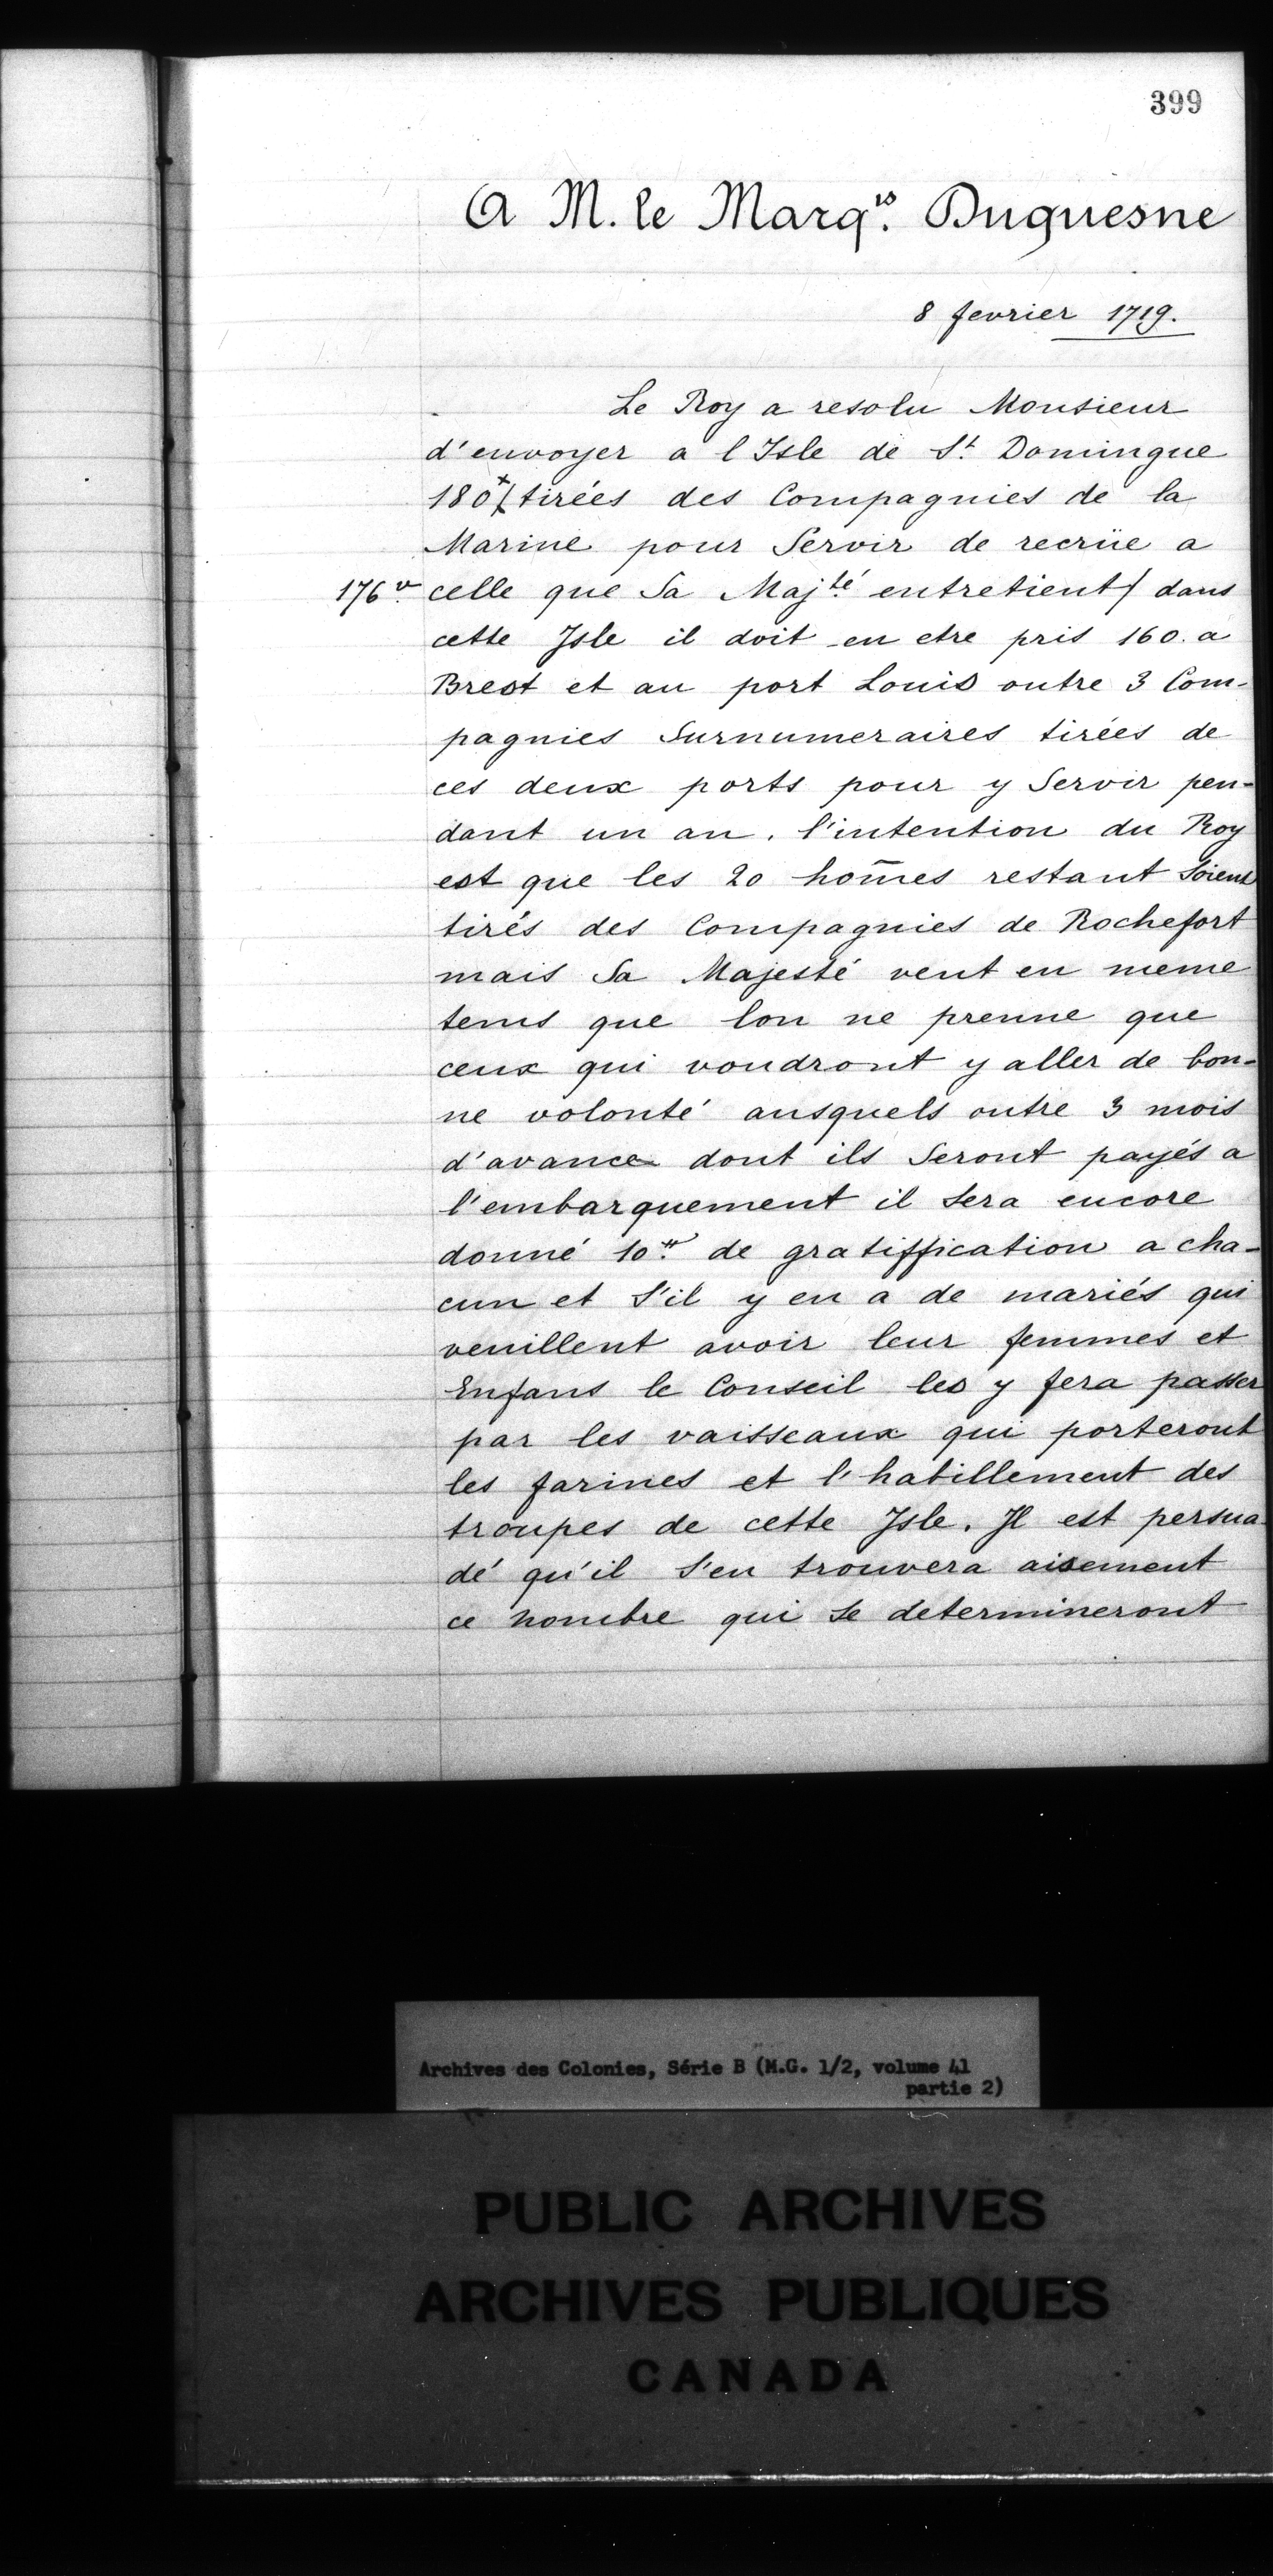 399
A M. le Marq.is Duquesne
8 fevrier 1719.
Le Roy a resolu Monsieur
d'envoyer a l Isle de St. Domingue
180+/ tirées des Compagnies de la
Marine pour Servir de recrüe a
176 v. celle que Sa Maj.té entretient/ dans
cette Isle il doit en etre pris 160. a
Brest et au port Louis outre 3 Com-
pagnies Surnumeraires tirées de
ces deux ports pour y Servir pen-
dant un an. l'intention du Roy
est que les 20 hom̃es restant Soient
tirés des Compagnies de Rochefort
mais Sa Majesté veut en meme
tems que lon ne prenne que
ceux qui voudront y aller de bon-
ne volonté ausquels outre 3 mois
d'avance dont ils Seront payés a
l'embarquement il sera encore
donné 10.tt de gratiffication a cha-
cun et S'il y en a de mariés qui
veuillent avoir leur femmes et
Enfans le Conseil les y fera passer
par les vaisseaux qui porteront
les farines et l'habillement des
troupes de cette Isle. Il est persua-
dé qu'il S'en trouvera aisement
ce nombre qui se determineront
Archives des Colonies, Série B (M.G. 1/2, volume 41
partie 2)
PUBLIC ARCHIVES
ARCHIVES PUBLIQUES
CANADA